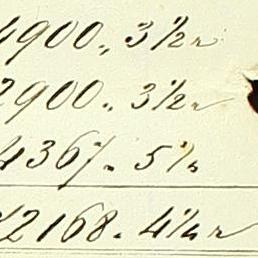 4900, 3 1/2 n
2900, 3 1/2 n
4367, 5 %
12168, 4 1/4 n